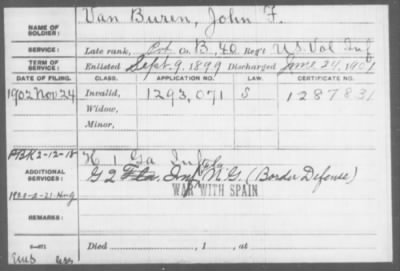 NAME OF SOLDIER: Van Buren, John F.
SERVICE: Late rank, Pvt Co. B, 40 Reg't U.S. Vol Inf
TERM OF SERVICE: Enlisted Sept. 9, 1899 Discharged June 24, 1901
DATE OF FILING. CLASS. APPLICATION NO. LAW. CERTIFICATE NO.
1902 Nov 24 Invalid, 1293,071 S 1287831
Widow,
Minor,
2-12-18 K 1 Ga Inf
ADDITIONAL SERVICES: G 2 Fla. Inf N.G. (Border Defense)
WAR WITH SPAIN
REMARKS:
Died , 1 , at